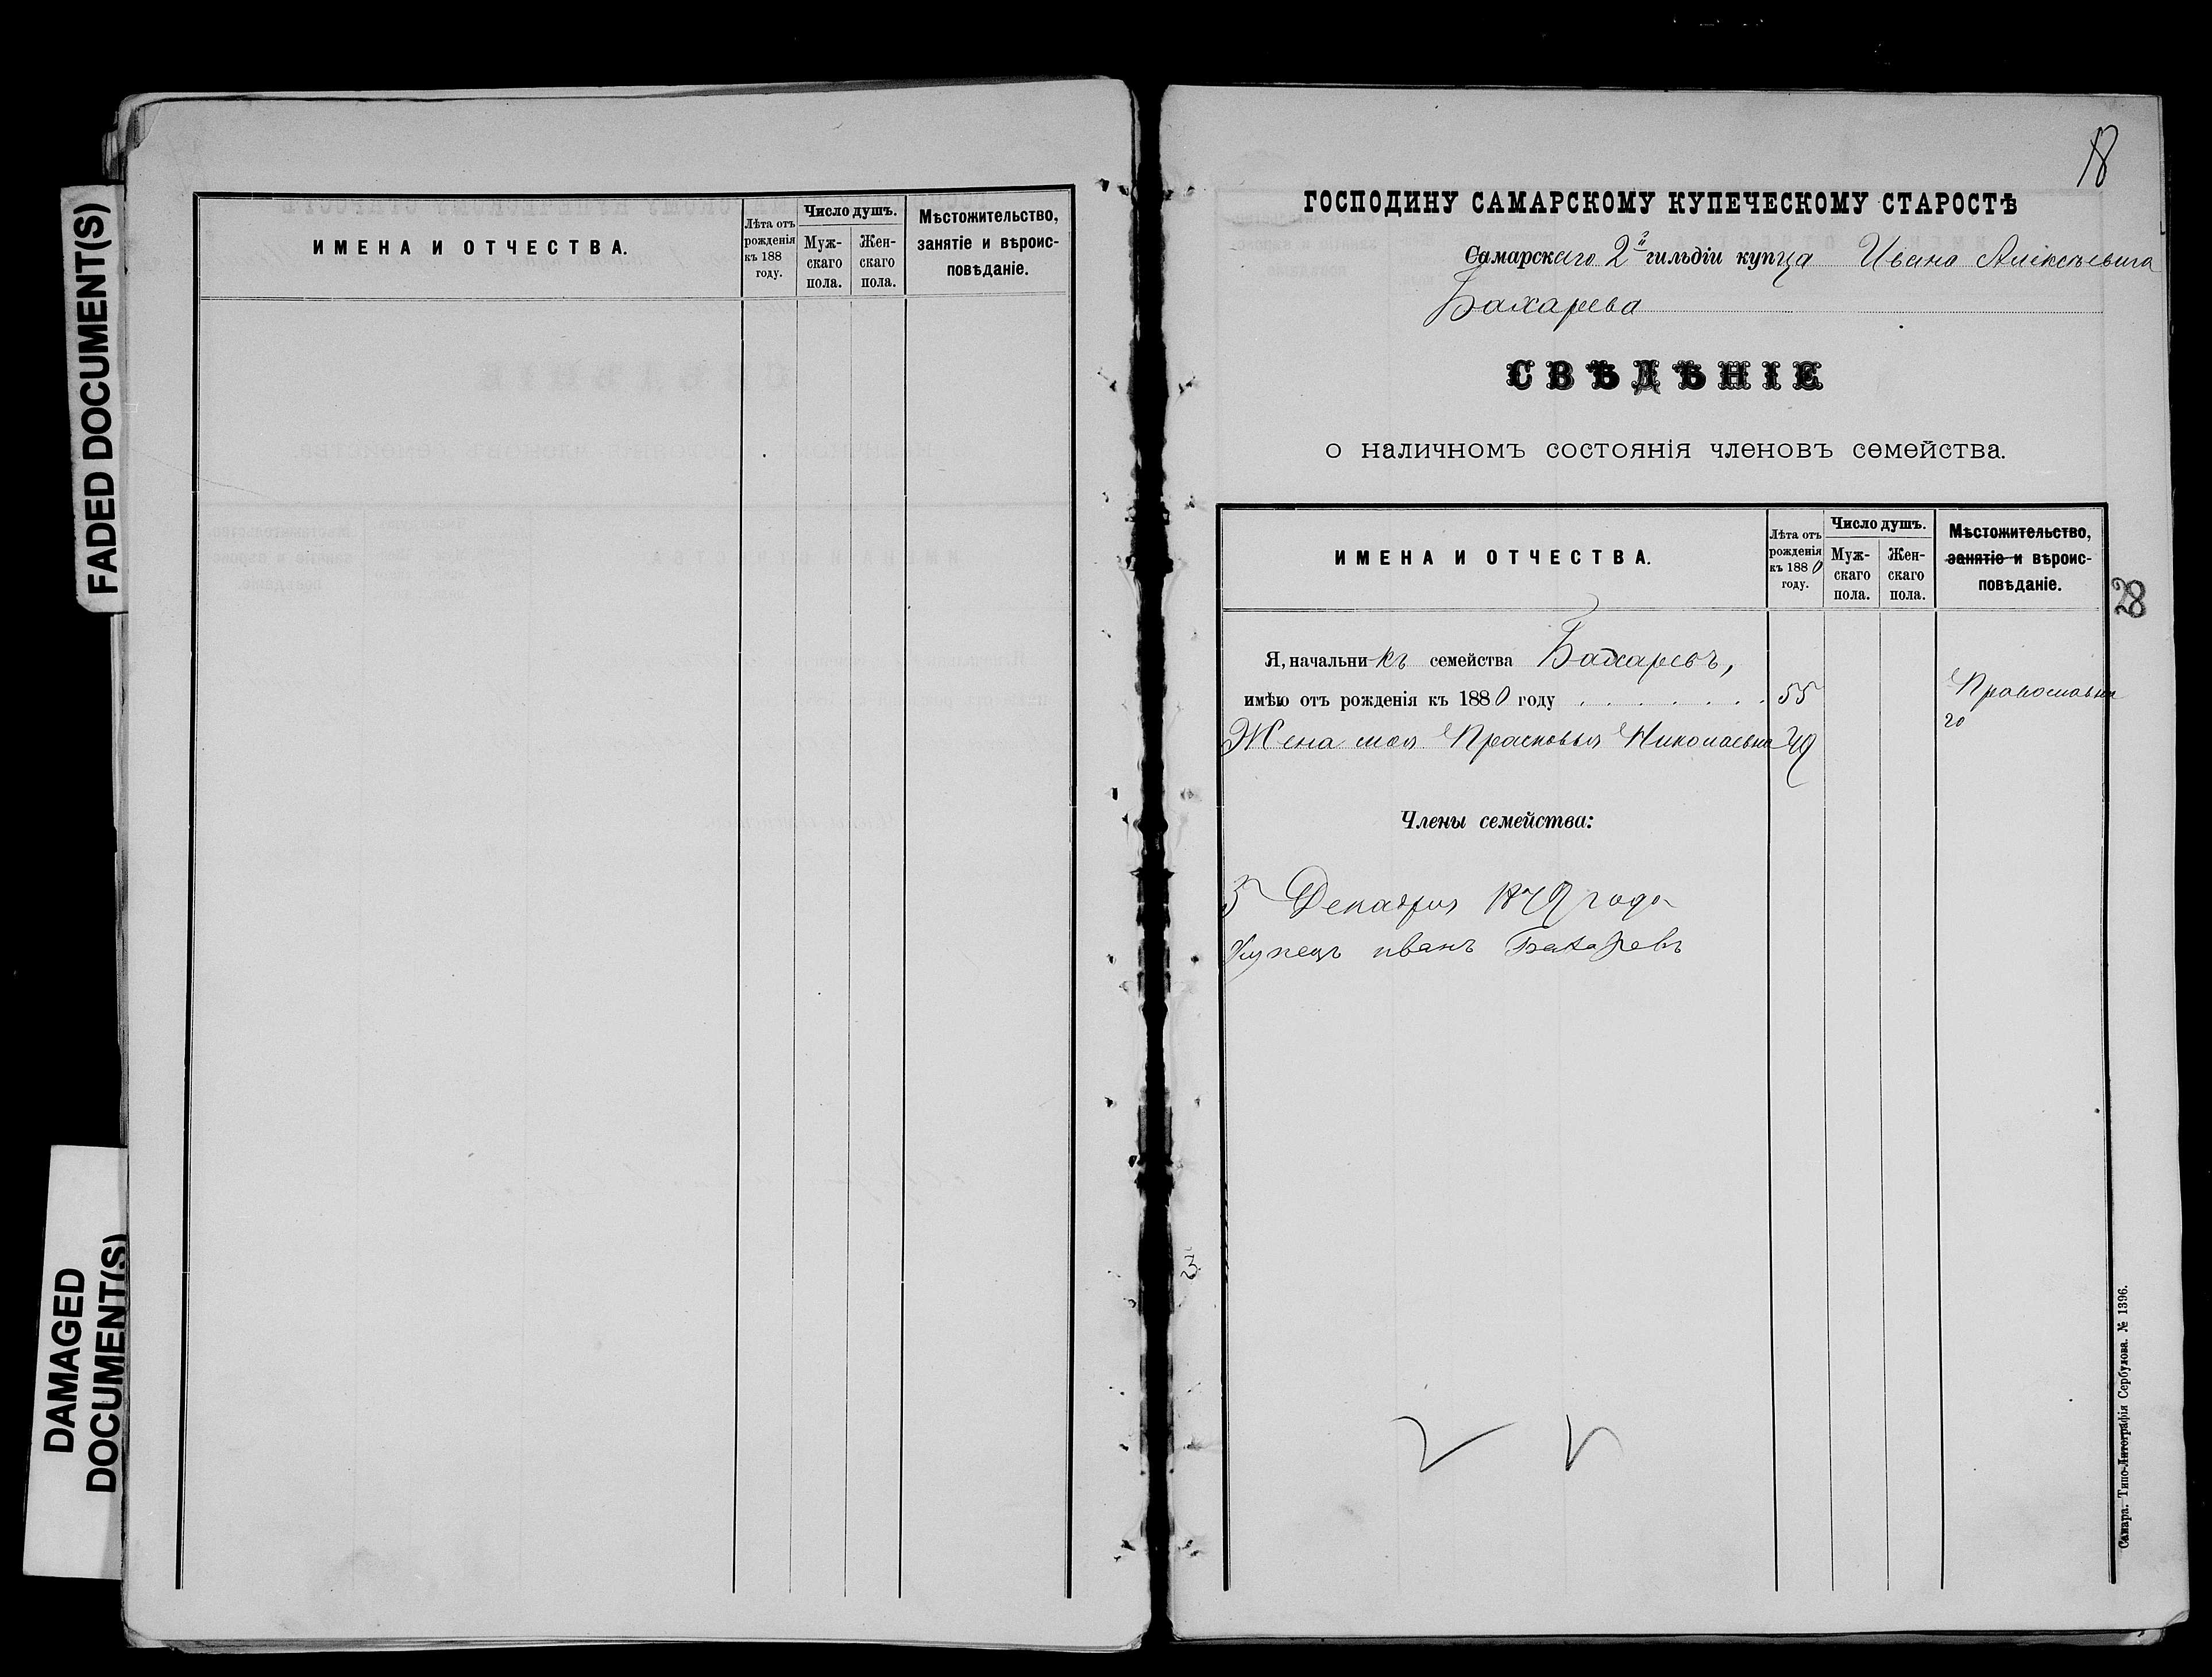 FADED DOCUMENT(S)
DAMAGED
DOCUMENT(S)
ИМЕНА И ОТЧЕСТВА.
Лѣта отъ
рожденія
къ 188
году.
Число душъ.
Муж-
скаго
пола.
Жен-
скаго
пола.
Мѣстожительство,
занятіе и вѣроис-
повѣданіе.
18
ГОСПОДИНУ САМАРСКОМУ КУПЕЧЕСКОМУ СТАРОСТѢ
Самарскаго 2й гильдіи купца Ивана Алексѣевича
Бахарева
СВѢДѢНІЕ
о наличномъ состоянія членовъ семейства.
ИМЕНА И ОТЧЕСТВА.
Лѣта отъ
рожденія
къ 1880
году.
Число душъ.
Муж-
скаго
пола.
Жен-
скаго
пола.
Мѣстожительство,
занятіе и вѣроис-
повѣданіе.
28
Я, начальникъ семейства Бахаревъ,
имѣю отъ рожденія къ 1880 году . . . . . . . 55
Православна
го
Жена моя Прасковья Николаевна 49
Члены семейства:
5 Декабря 1879 года
Купецъ иванъ Бахаревъ
3
Самара. Типо-Литографія Сербулова. № 1396.